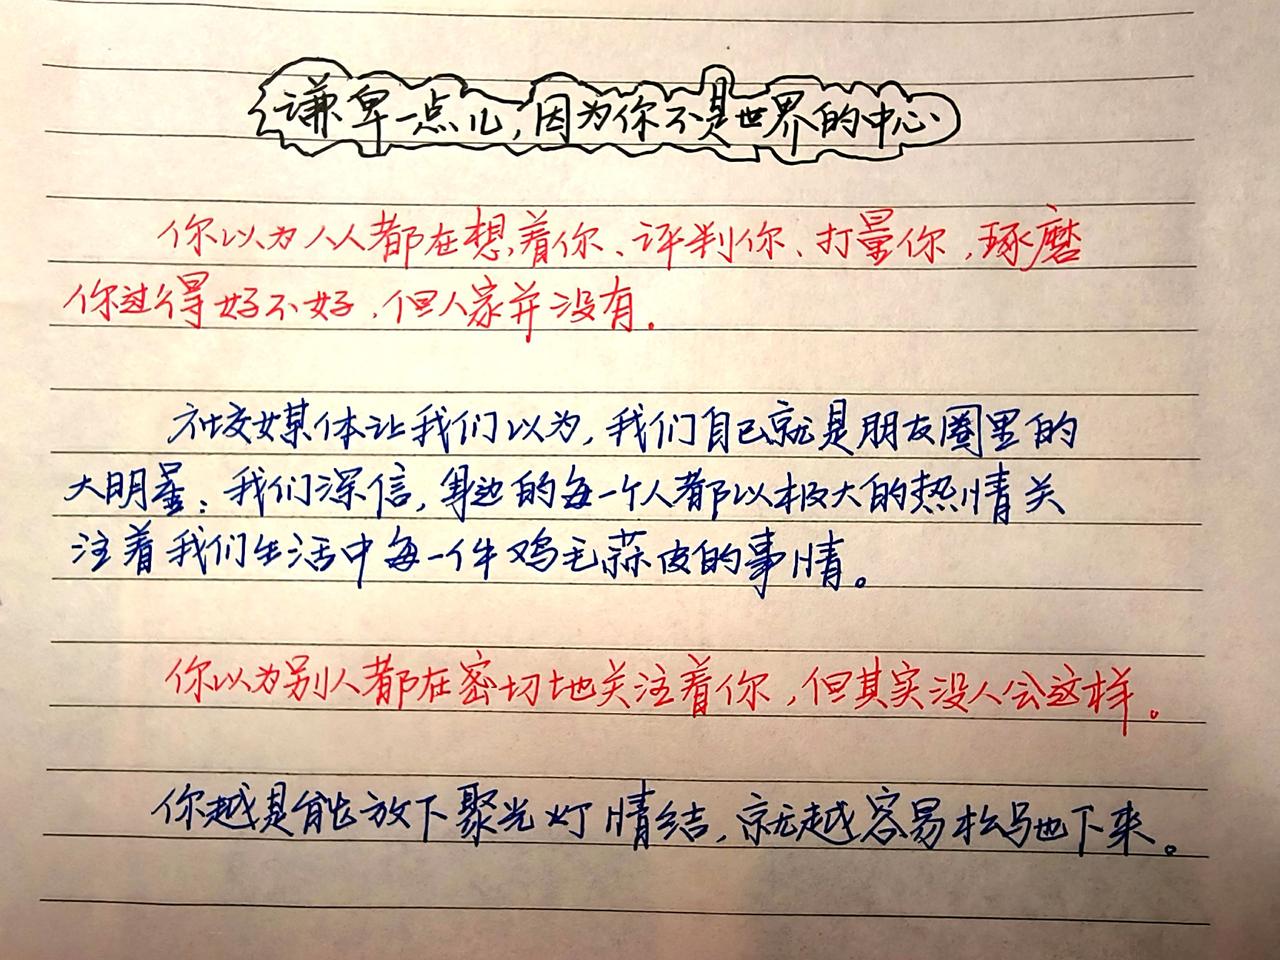 谦卑一点儿,因为你不是世界的中心.
你以为人人都在想着你、评判你、打量你,琢磨
你过得好不好,但人家并没有.
社交媒体让我们以为,我们自己就是朋友圈里的
大明星;我们深信,身边的每一个人都以极大的热情关
注着我们生活中每一件鸡毛蒜皮的事情。
你以为别人都在密切地关注着你,但其实没人会这样。
你越是能放下聚光灯情结,就越容易松弛下来。